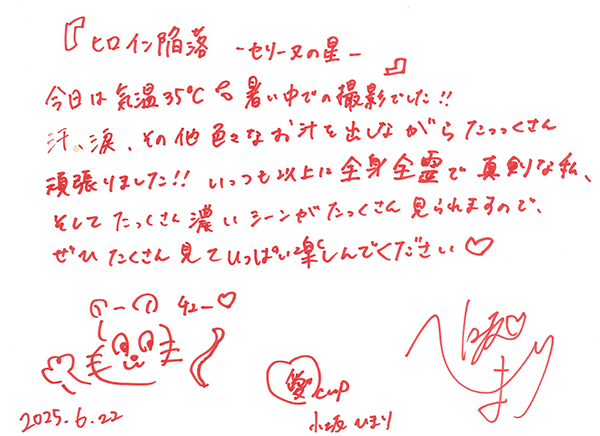 『ヒロイン陥落 -セリーヌの星-』
今日は気温35℃の暑い中での撮影でした!!
汗、涙、その他色々なお汁を出しながらたっっくさん
頑張りました!! いっつも以上に全身全霊で真剣な私、
そしてたっくさん濃いシーンがたっくさん見られますので、
ぜひたくさん見ていっぱい楽しんでください♡
チュー♡
2025.6.22
愛cup
小坂ひまり